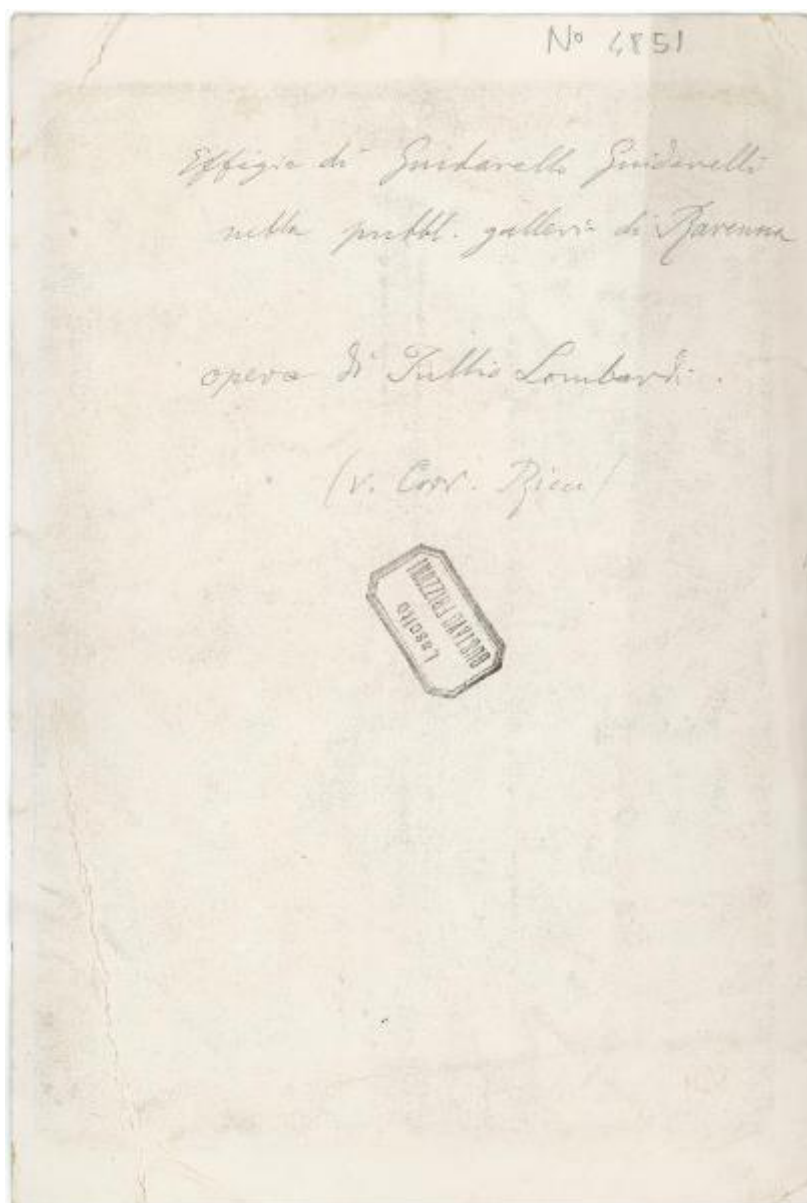 No 4851
Effigie di Guidarello Guidarelli
nella pubbl. galleria di Ravenna
opera di Tullio Lombardi.
(v. Corr. Ricci)
Lascito
GUSTAVO FRIZZONI